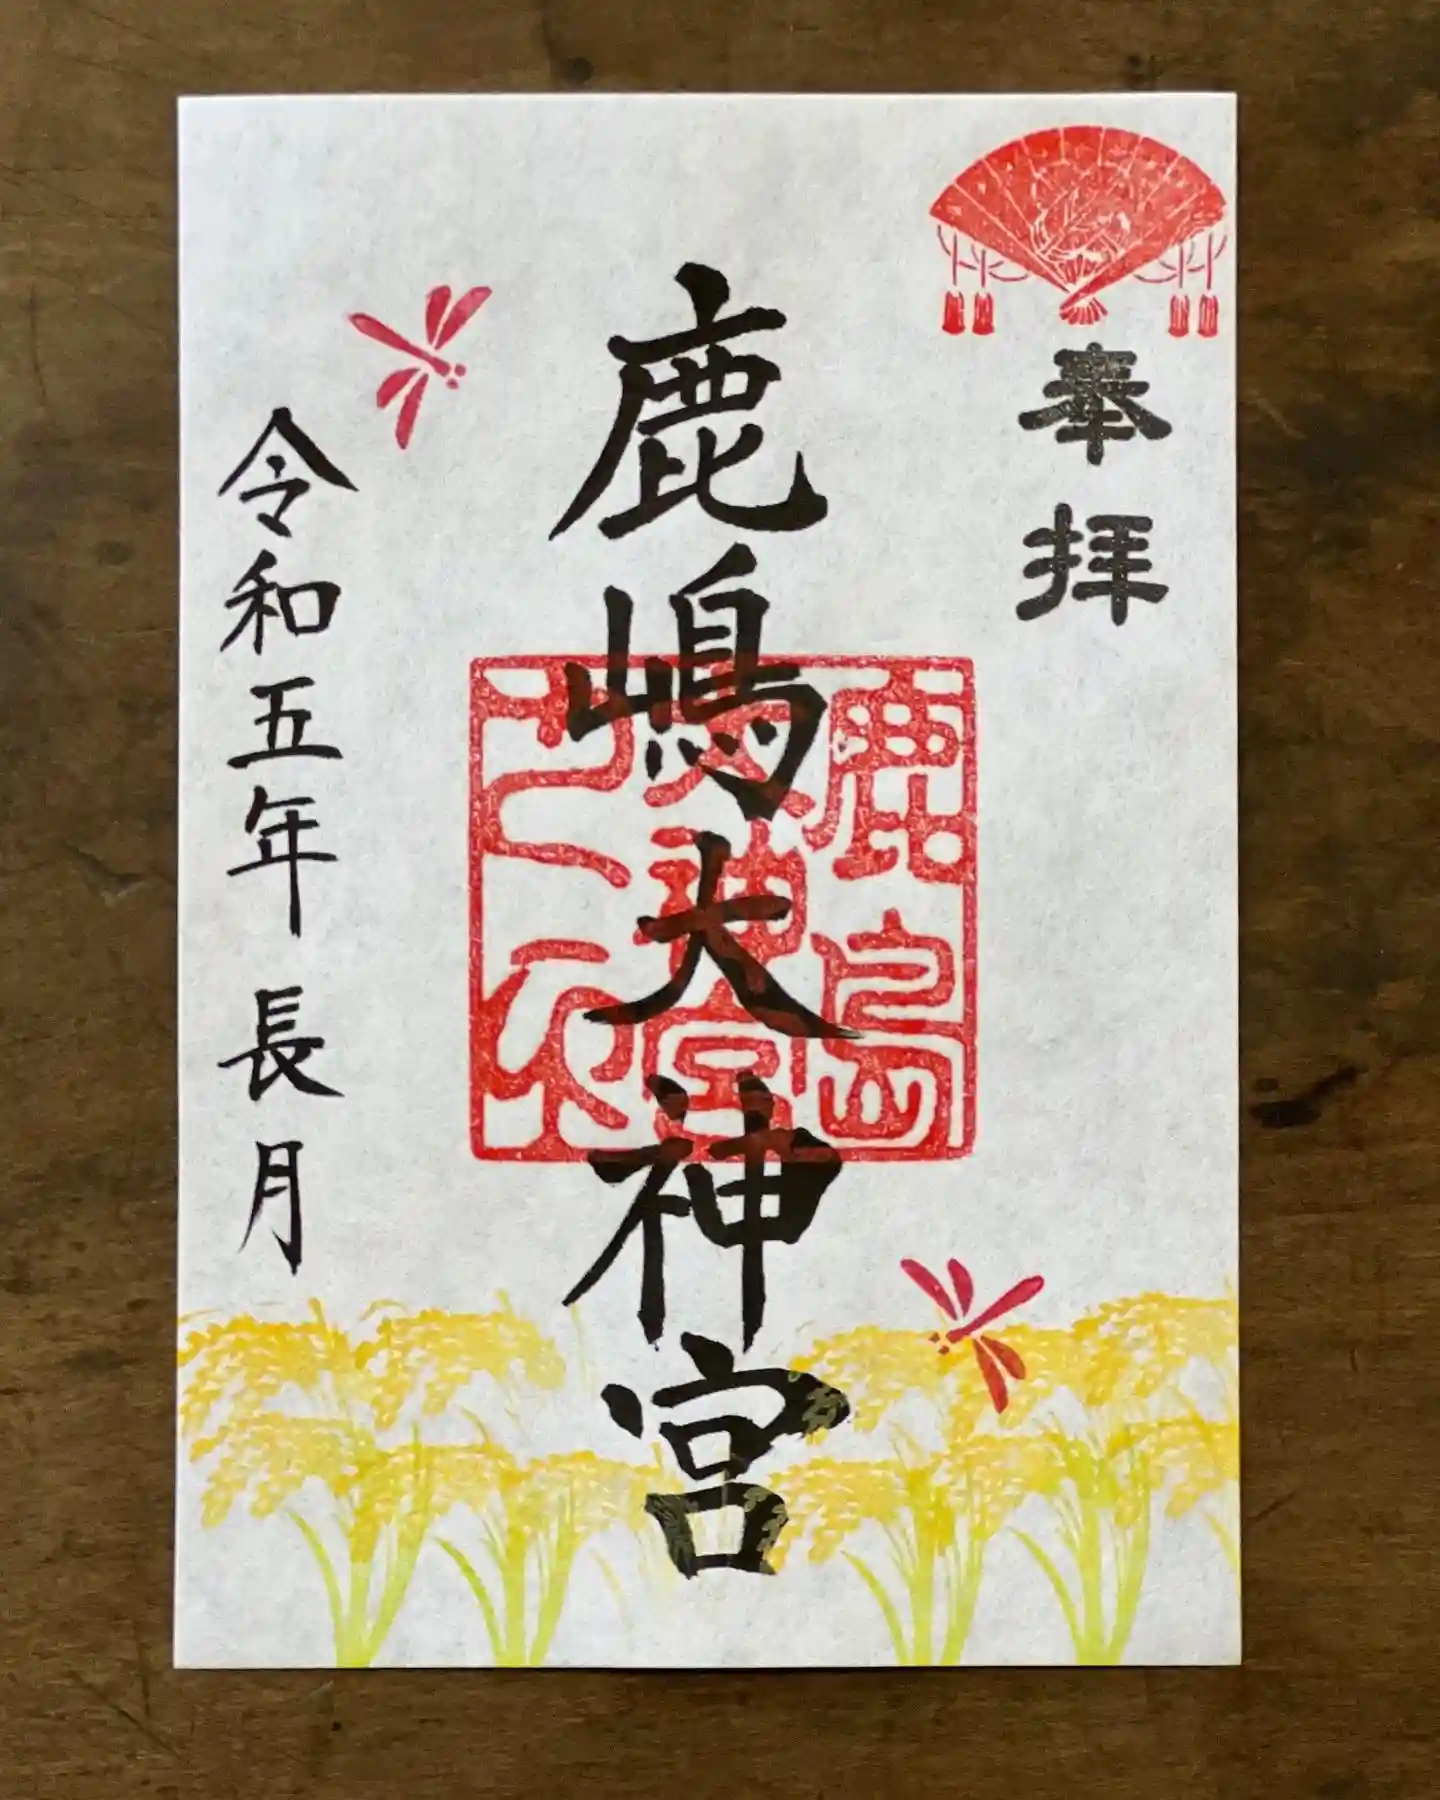 奉拝
鹿嶋大神宮
鹿島
大神宮
令和五年 長月